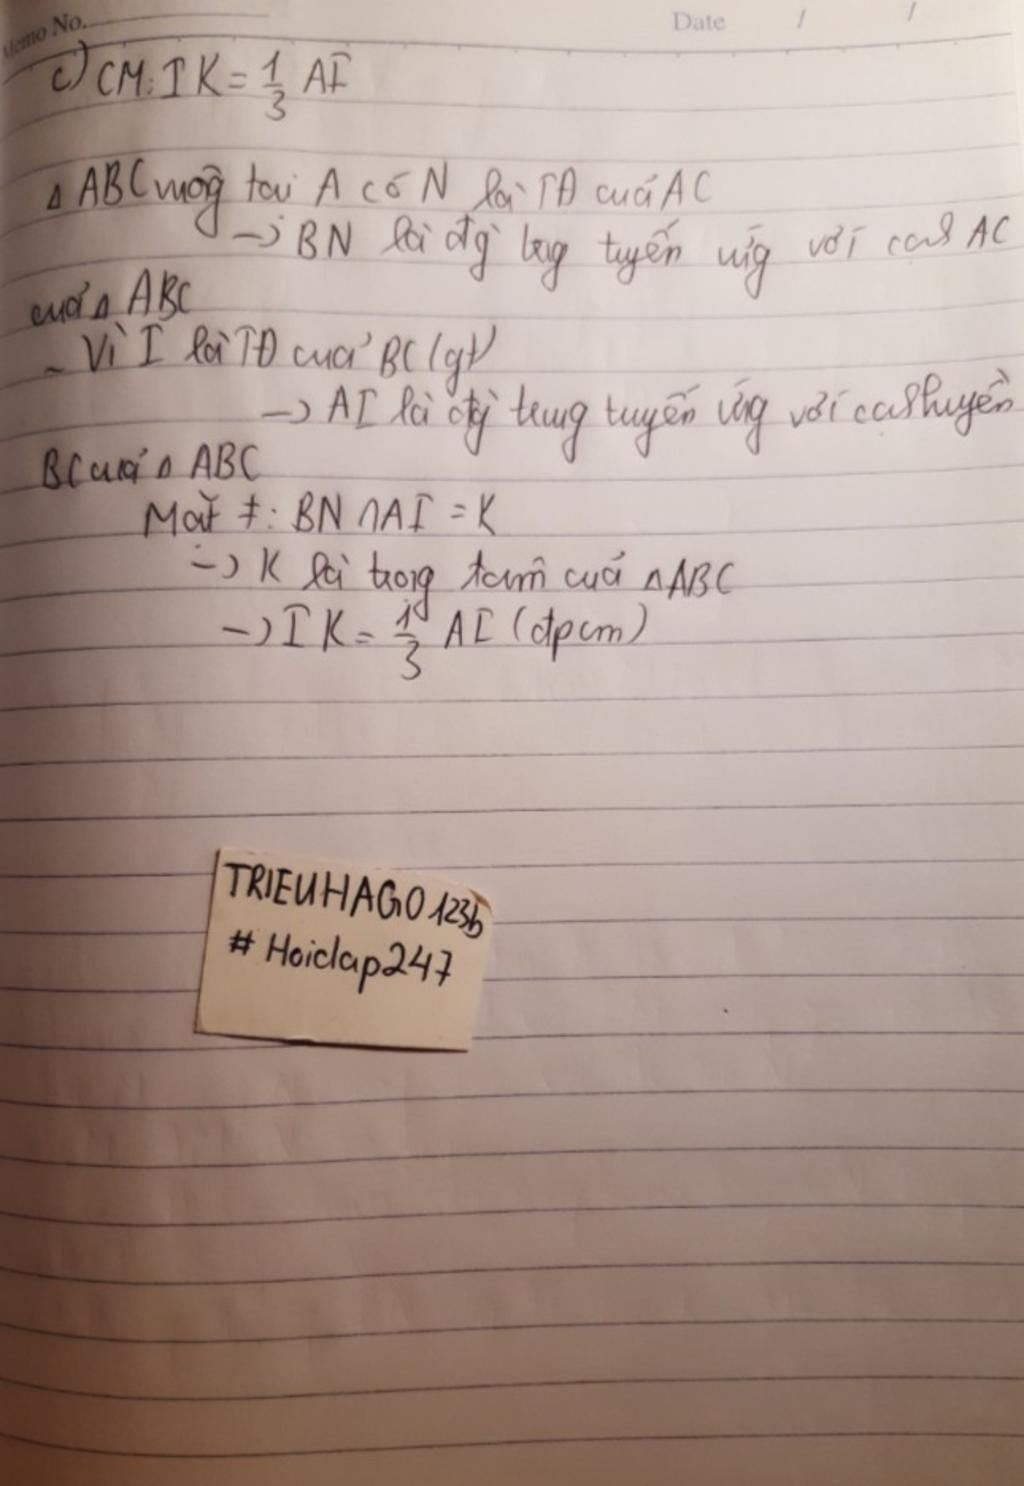 Memo No.
Date / /
c) CM: IK = 1/3 AI
Δ ABC vuôg tại A có N là TĐ của AC
-> BN là đg trug tuyến ứg với cah AC
của Δ ABC
- Vì I là TĐ của BC (gt)
-> AI là đg trung tuyến ứng với cah huyền
BC của Δ ABC
Mặt ≠: BN ∩ AI = K
-> K là trọng tâm của Δ ABC
-> IK = 1/3 AI (đpcm)
TRIEUHAGO123b
# Hoidap247